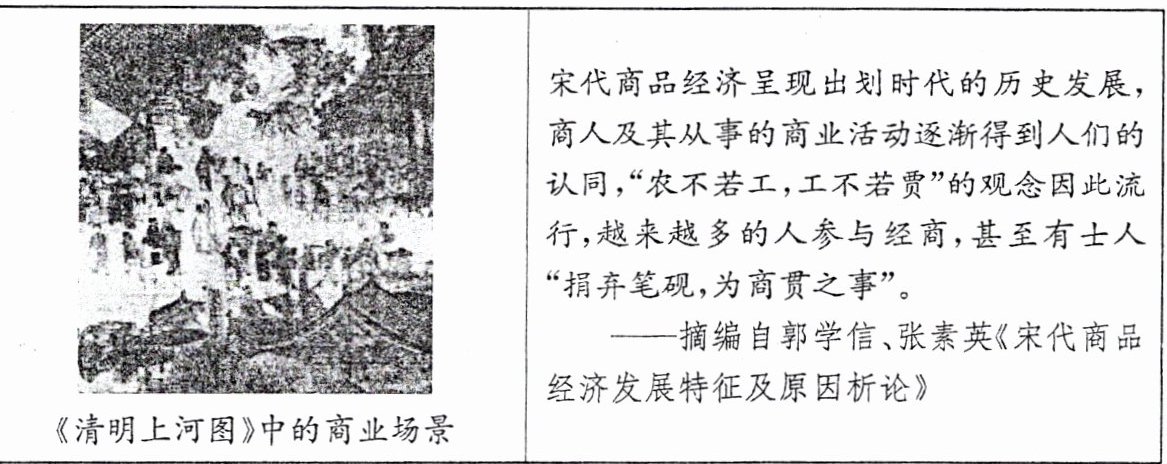 《清明上河图》中的商业场景
宋代商品经济呈现出划时代的历史发展，
商人及其从事的商业活动逐渐得到人们的
认同，“农不若工，工不若贾”的观念因此流
行，越来越多的人参与经商，甚至有士人
“捐弃笔砚，为商贯之事”。
——摘编自郭学信、张素英《宋代商品
经济发展特征及原因析论》